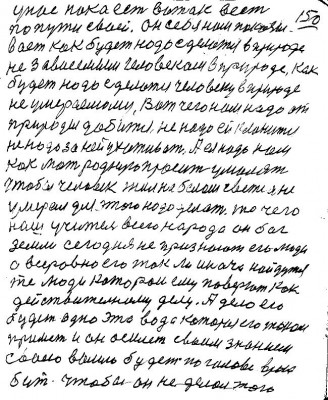 у нас пока ест вот так вест
по пути своей. Он себя нам показы- 150
вает как будет надо сделат в природе
не зависимым человекам в природе, как
будет надо сделат человеку в природе
не умерашими, Вот чего нам надо от
природы добится, не надо ей
не надо за ней ухаживат, А ей надо нам
как мат родную просит умолят
чтобы человек жил на белом свете и не
умерал для этого надо делат, то чего
наш учител всего народа он бог
земли сегодня не признают его люди
а всеровно его так ли иначе найдутся
те люди которые ему поверют как
действителному делу. А дело его
будет одно это вода которая его таким
примет и он осилет своим знанием
своего волию будет по голове врага
бит. чтобы он не делал этого